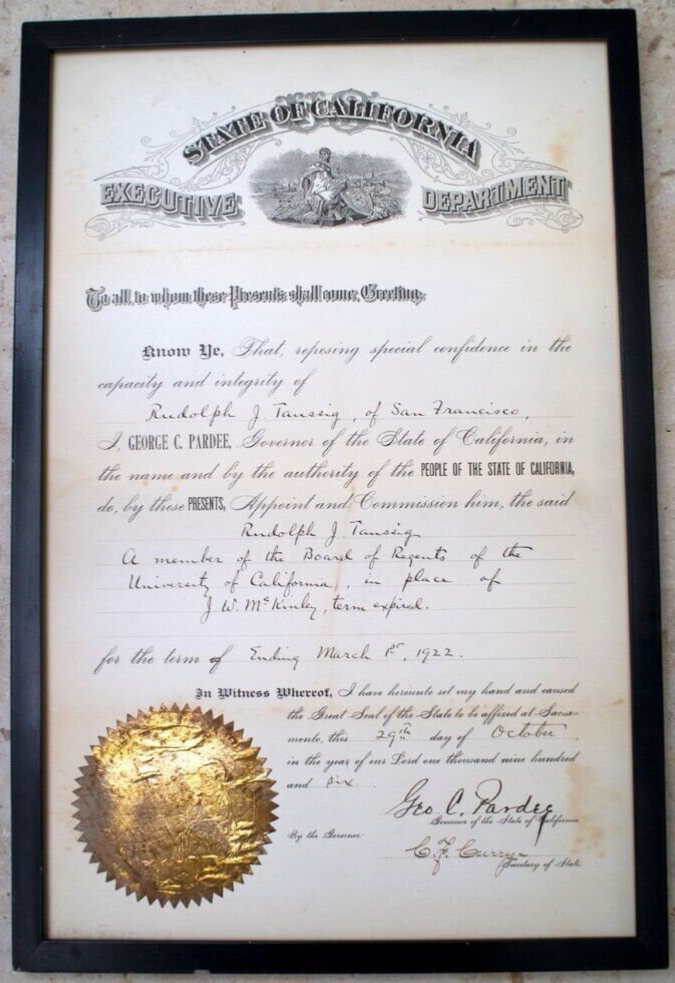 STATE OF CALIFORNIA
EXECUTIVE DEPARTMENT
To all to whom these Presents shall come, Greeting:
Know Ye, That, reposing special confidence in the
capacity and integrity of
Rudolph J. Taussig, of San Francisco,
I, GEORGE C. PARDEE, Governor of the State of California, in
the name and by the authority of the PEOPLE OF THE STATE OF CALIFORNIA,
do, by these PRESENTS, Appoint and Commission him, the said
Rudolph J. Taussig
A member of the Board of Regents of the
University of California, in place of
J. W. McKinley, term expired.
for the term of Ending March 1st, 1922.
In Witness Whereof, I have hereunto set my hand and caused
the Great Seal of the State to be affixed at Sacra-
mento, this 29th day of October,
in the year of our Lord one thousand nine hundred
and six.
Geo. C. Pardee
Governor of the State of California
By the Governor
C. F. Curry
Secretary of State